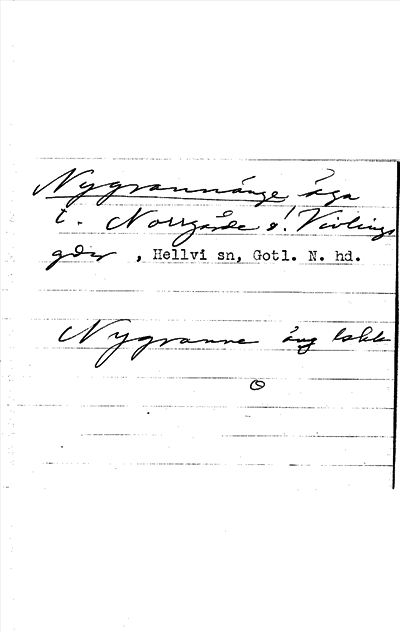 Nygrannänge äga
t. Norrgårde o! Vivlings
gdr , Hellvi sn, Gotl. N. hd.
Nygranne äng